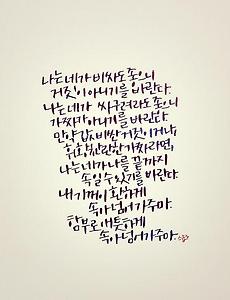 나는 네가 비싸도 좋으니
거짓이 아니기를 바란다.
나는 네가 싸구려라도 좋으니
가짜가 아니기를 바란다.
만약 값비싼 거짓이거나
휘황찬란한 가짜라면,
나는 네가 나를 끝까지
속일 수 있기를 바란다
내 기꺼이 환하게
속아 넘어가주마.
함부로 애틋하게
속아 넘어가주마.